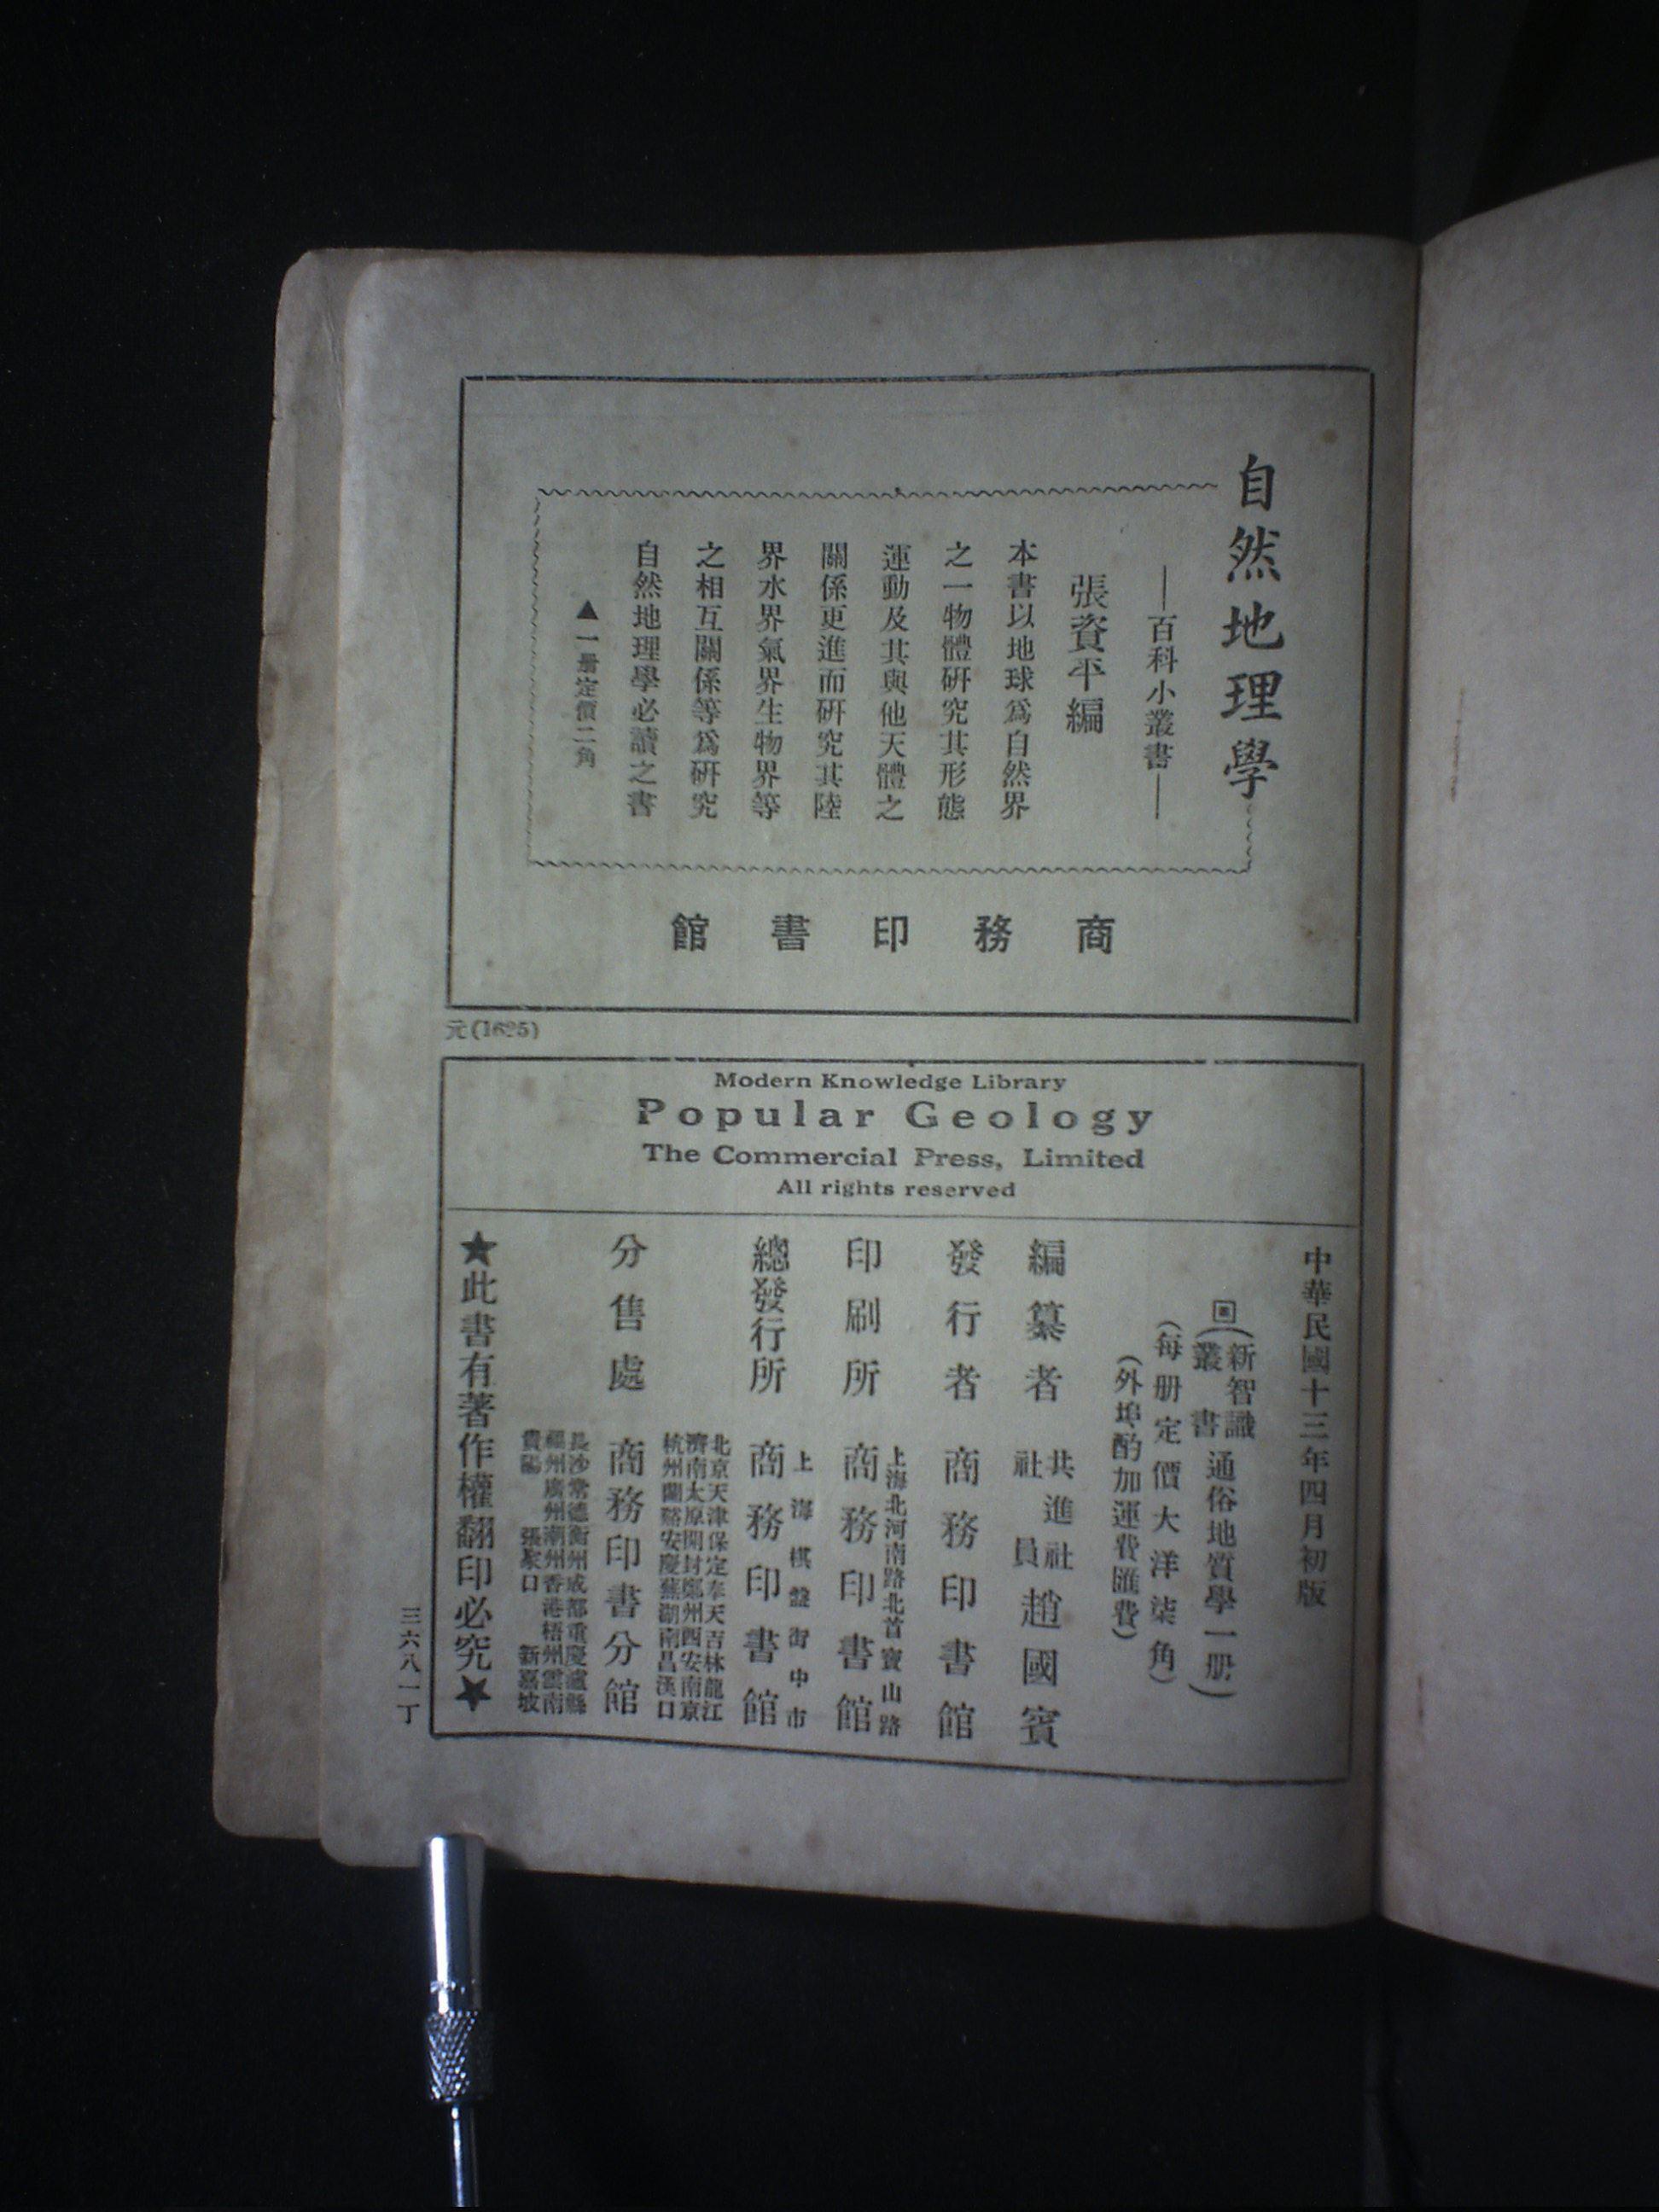 自然地理學
百科小叢書
張資平編
本書以地球爲自然界
之一物體研究其形態
運動及其與他天體之
關係更進而研究其陸
界水界氣界生物界等
之相互關係等爲研究
自然地理學必讀之書
▲一册定價二角
商務印書館
元(1625)
Modern Knowledge Library
Popular Geology
The Commercial Press, Limited
All rights reserved
中華民國十三年四月初版
回(新智識叢書通俗地質學一册)
(每册定價大洋柒角)
(外埠酌加運費匯費)
編纂者 共進社社員 趙國賓
發行者 商務印書館
上海北河南路北首寶山路
印刷所 商務印書館
上海棋盤街中市
總發行所 商務印書館
北京天津保定奉天吉林龍江
濟南太原開封鄭州西安南京
杭州蘭谿安慶蕪湖南昌漢口
分售處 商務印書分館
長沙常德衡州成都重慶瀘縣
福州廣州潮州香港梧州雲南
貴陽 張家口 新嘉坡
★此書有著作權翻印必究★
三六八一丁